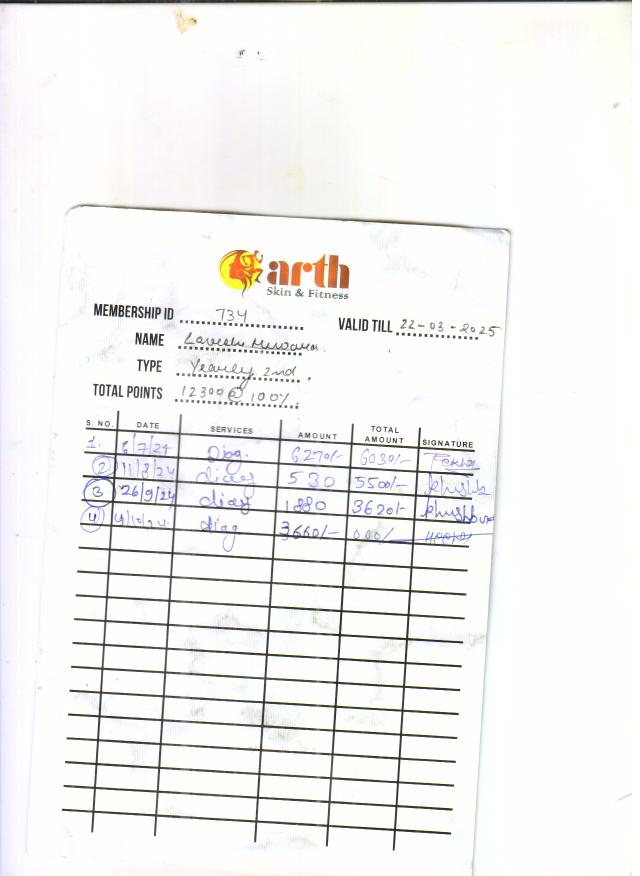 arth
Skin & Fitness
MEMBERSHIP ID 734
VALID TILL 22-03-2025
NAME
TYPE Yearly 2nd.
TOTAL POINTS 12300 @ 100%.
S. NO. DATE SERVICES AMOUNT TOTAL AMOUNT SIGNATURE
1. /7/24 6270/- 6030/-
2 11/8/24 diag 530 5500/- khushb
3 26/9/24 diag 1880 3620/- khushbu
4 diag 3660/- 000/-